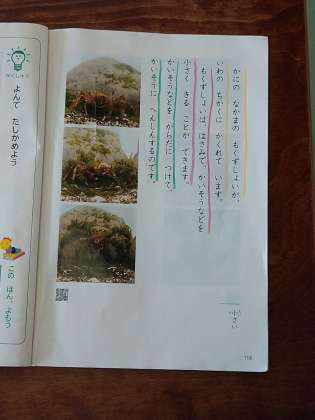 かにの なかまの もくずしょいが、
いわの ちかくに かくれて います。
もくずしょいは、はさみで、かいそうなどを
小さく きる ことが できます。
かいそうなどを からだに つけて、
かいそうに へんしんするのです。
小さい
116
よんで たしかめよう
この ほん、よもう